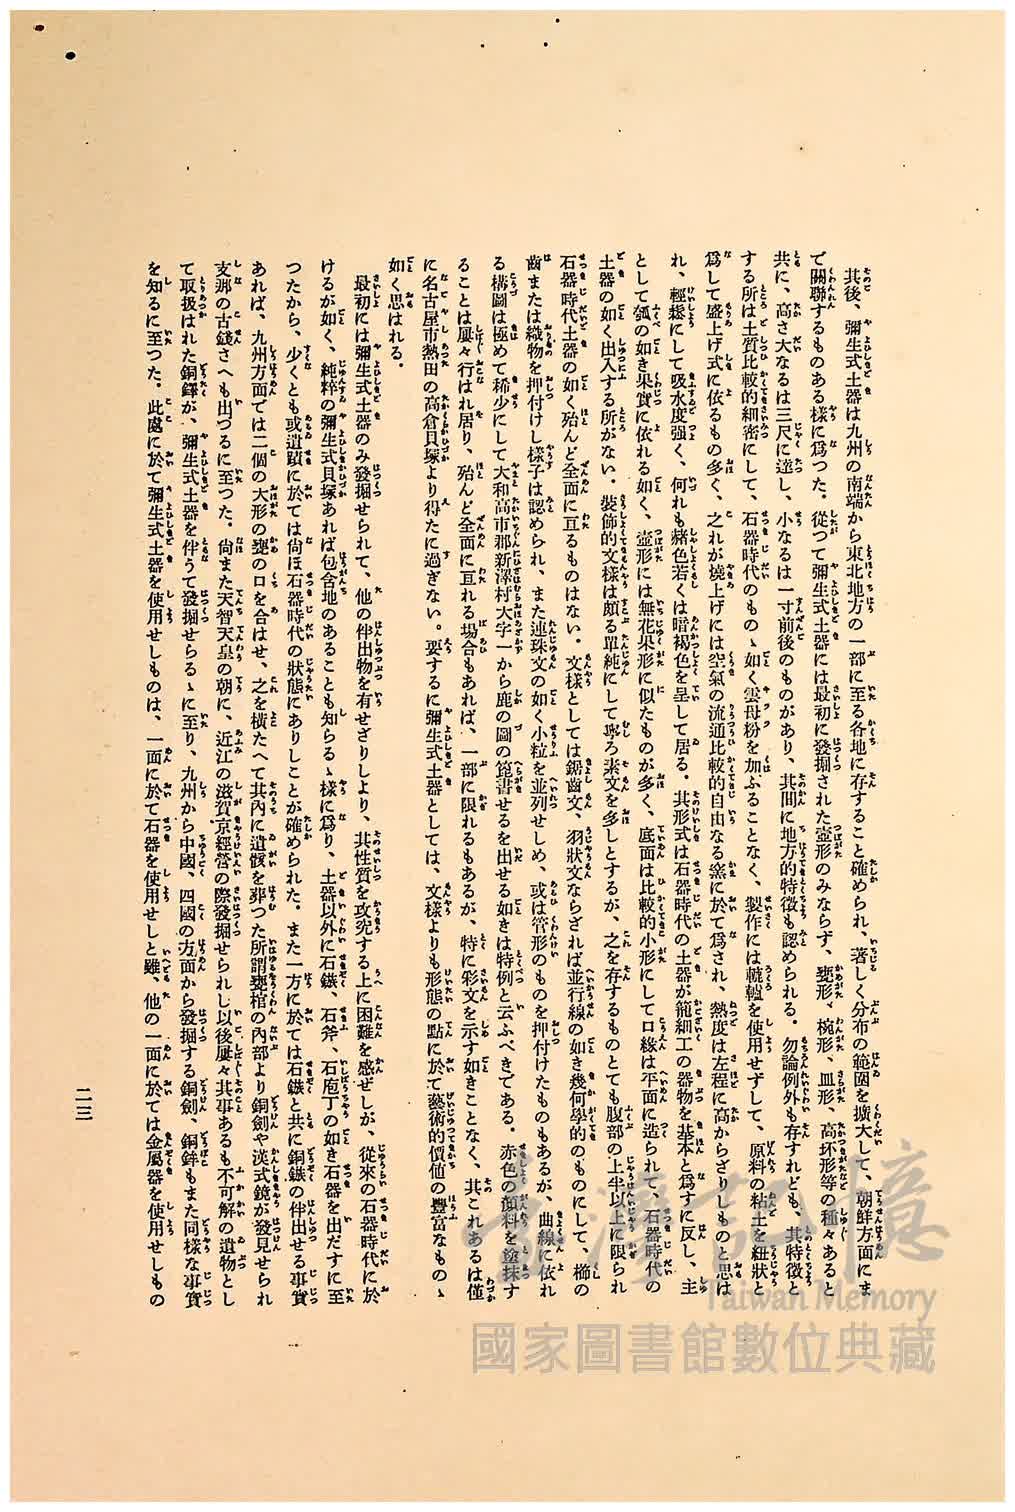 其後、彌生式土器は九州の南端から東北地方の一部に至る各地に存すること確められ、著しく分布の範圍を擴大して、朝鮮方面にま
で關聯するものある樣に爲つた。從つて彌生式土器には最初に發掘された壺形のみならず、甕形、椀形、皿形、高坏形等の種々あると
共に、高さ大なるは三尺に達し、小なるは一寸前後のものがあり、其間に地方的特徵も認められる。勿論例外も存すれども、其特徵と
する所は土質比較的細密にして、石器時代のものゝ如く雲母粉を加ふることなく、製作には轆轤を使用せずして、原料の粘土を紐狀と
爲して盛上げ式に依るもの多く、之れが燒上げには空氣の流通比較的自由なる窯に於て爲され、熱度は左程に高からざりしものと思は
れ、輕鬆にして吸水度强く、何れも赭色若くは暗褐色を呈して居る。其形式は石器時代の土器が籠細工の器物を基本と爲すに反し、主
として瓠の如き果實に依れる如く、壺形には無花果形に似たものが多く、底面は比較的小形にして口緣は平面に造られて、石器時代の
土器の如く出入する所がない。裝飾的文樣は頗る單純にして寧ろ素文を多しとするが、之を存するものとても腹部の上半以上に限られ
石器時代土器の如く殆んど全面に亙るものはない。文樣としては鋸齒文、羽狀文ならざれば並行線の如き幾何學的のものにして、櫛の
齒または織物を押付けし樣子は認められ、また連珠文の如く小粒を並列せしめ、或は管形のものを押付けたものもあるが、曲線に依れ
る構圖は極めて稀少にして大和高市郡新澤村大字一から鹿の圖の箆書せるを出せる如きは特例と云ふべきである。赤色の顏料を塗抹す
ることは屢々行はれ居り、殆んど全面に亙れる場合もあれば、一部に限れるもあるが、特に彩文を示す如きことなく、其これあるは僅
に名古屋市熱田の高倉貝塚より得たに過ぎない。要するに彌生式土器としては、文樣よりも形態の點に於て藝術的價値の豐富なものゝ
如く思はれる。
最初には彌生式土器のみ發掘せられて、他の伴出物を有せざりしより、其性質を攻究する上に困難を感ぜしが、從來の石器時代に於
けるが如く、純粹の彌生式貝塚あれば包含地のあることも知らるゝ樣に爲り、土器以外に石鏃、石斧、石庖丁の如き石器を出だすに至
つたから、少くとも或遺蹟に於ては尙ほ石器時代の狀態にありしことが確められた。また一方に於ては石鏃と共に銅鏃の伴出せる事實
あれば、九州方面では二個の大形の甕の口を合はせ、之を橫たへて其內に遺骸を葬つた所謂甕棺の內部より銅劍や漢式鏡が發見せられ
支那の古錢さへも出づるに至つた。尙また天智天皇の朝に、近江の滋賀京經營の際發掘せられし以後屢々其事あるも不可解の遺物とし
て取扱はれた銅鐸が、彌生式土器を伴うて發掘せらるゝに至り、九州から中國、四國の方面から發掘する銅劍、銅鉾もまた同樣な事實
を知るに至つた。此處に於て彌生式土器を使用せしものは、一面に於て石器を使用せしと雖、他の一面に於ては金屬器を使用せしもの
二三
臺灣記憶
Taiwan Memory
國家圖書館數位典藏